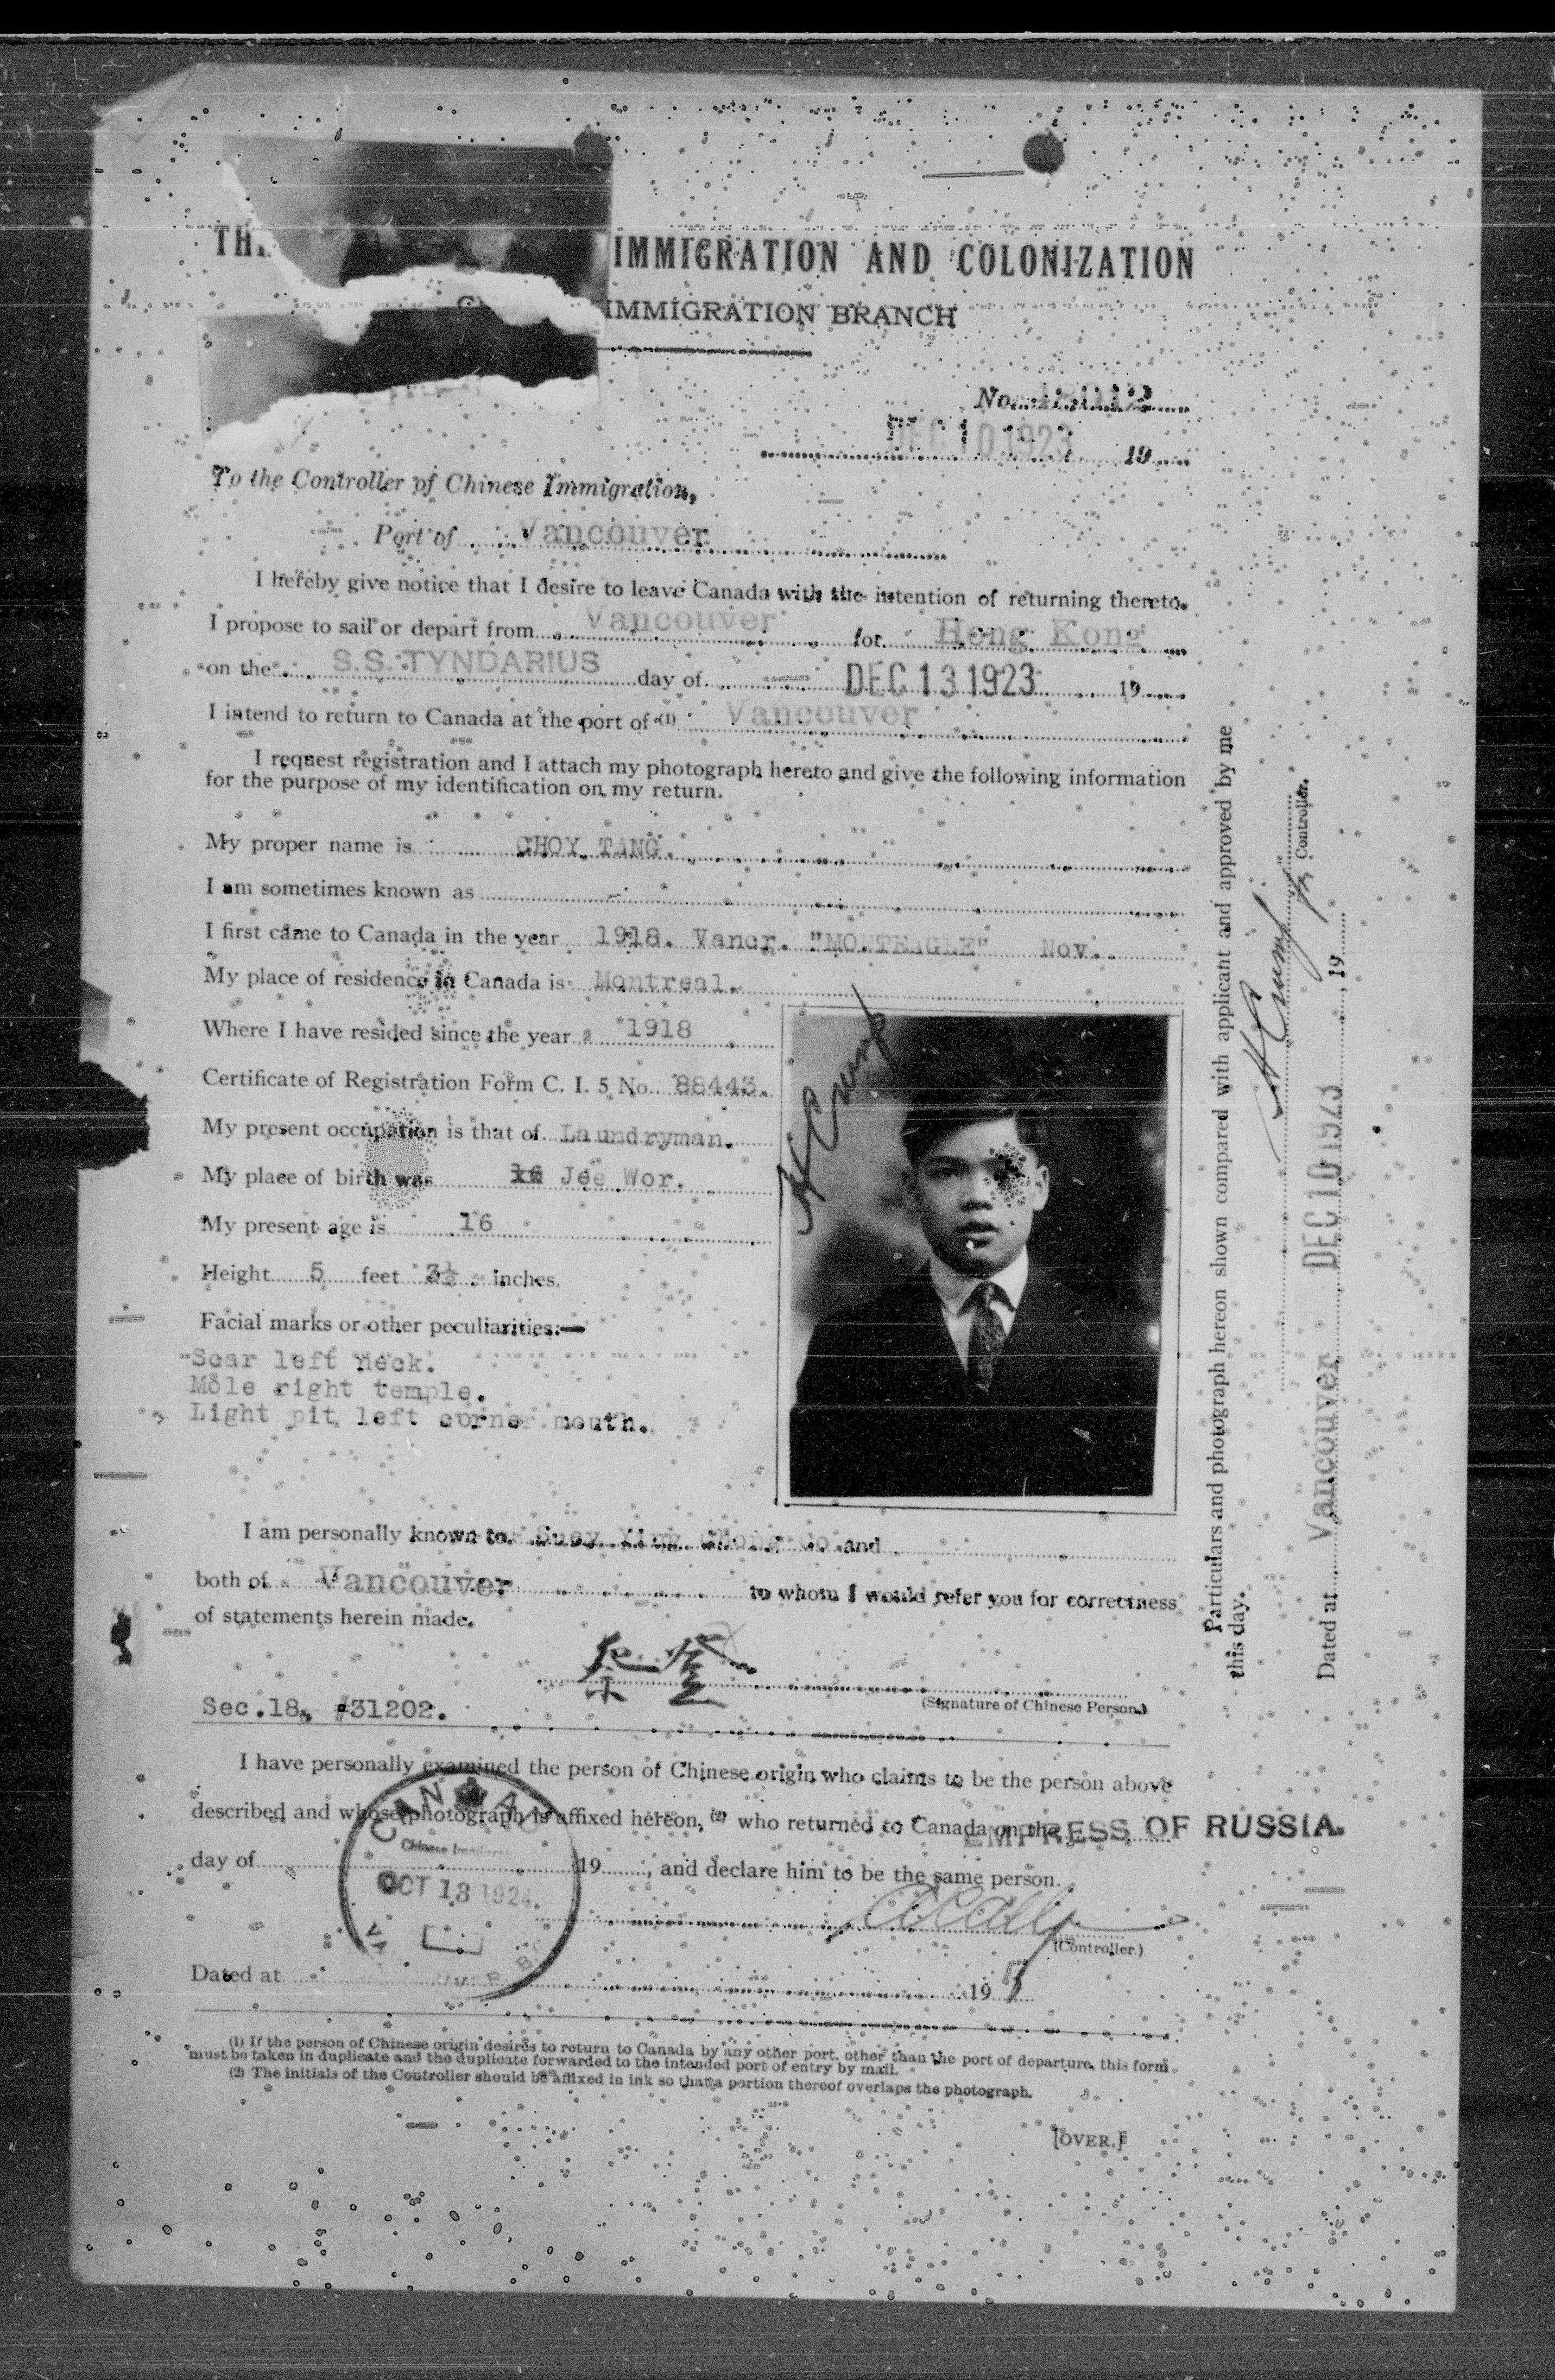 IMMIGRATION AND COLONIZATION
IMMIGRATION BRANCH
No.
DEC 10 1923 19
To the Controller of Chinese Immigration,
Port of Vancouver
I hereby give notice that I desire to leave Canada with the intention of returning thereto.
I propose to sail or depart from Vancouver for Hong Kong
on the S.S. TYNDARIUS day of DEC 13 1923 19
I intend to return to Canada at the port of (1) Vancouver
I request registration and I attach my photograph hereto and give the following information
for the purpose of my identification on my return.
My proper name is CHOY TANG.
I am sometimes known as
I first came to Canada in the year 1918. Vancr. "MONTEAGLE" Nov.
My place of residence in Canada is Montreal.
Where I have resided since the year 1918
Certificate of Registration Form C. I. 5 No. 88443.
My present occupation is that of Laundryman.
My place of birth was Jee Wor.
My present age is 16
Height 5 feet 3½ inches.
Facial marks or other peculiarities:—
Scar left neck.
Mole right temple.
Light pit left corner mouth.
H Crump
I am personally known to and
both of Vancouver to whom I would refer you for correctness
of statements herein made.
(Signature of Chinese Person.)
Sec.18. #31202.
I have personally examined the person of Chinese origin who claims to be the person above
described and whose photograph is affixed hereon, (2) who returned to Canada on the EMPRESS OF RUSSIA.
day of 19 , and declare him to be the same person.
(Controller.)
Dated at 19
CANADA
Chinese
OCT 13 1924
(1) If the person of Chinese origin desires to return to Canada by any other port, other than the port of departure, this form
must be taken in duplicate and the duplicate forwarded to the intended port of entry by mail.
(2) The initials of the Controller should be affixed in ink so that a portion thereof overlaps the photograph.
[OVER.]
Particulars and photograph hereon shown compared with applicant and approved by me
this day.
H Crump
Controller.
Dated at Vancouver DEC 10 1923 , 19